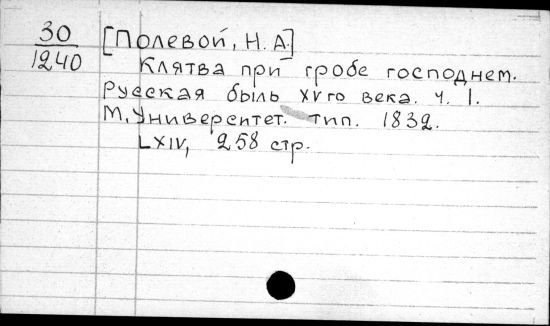 30
1240
[Полевой, Н. А.]
Клятва при гробе господнем.
Русская быль XVго века. ч. 1.
М. Университет. тип. 1832.
LXIV, 258 стр.